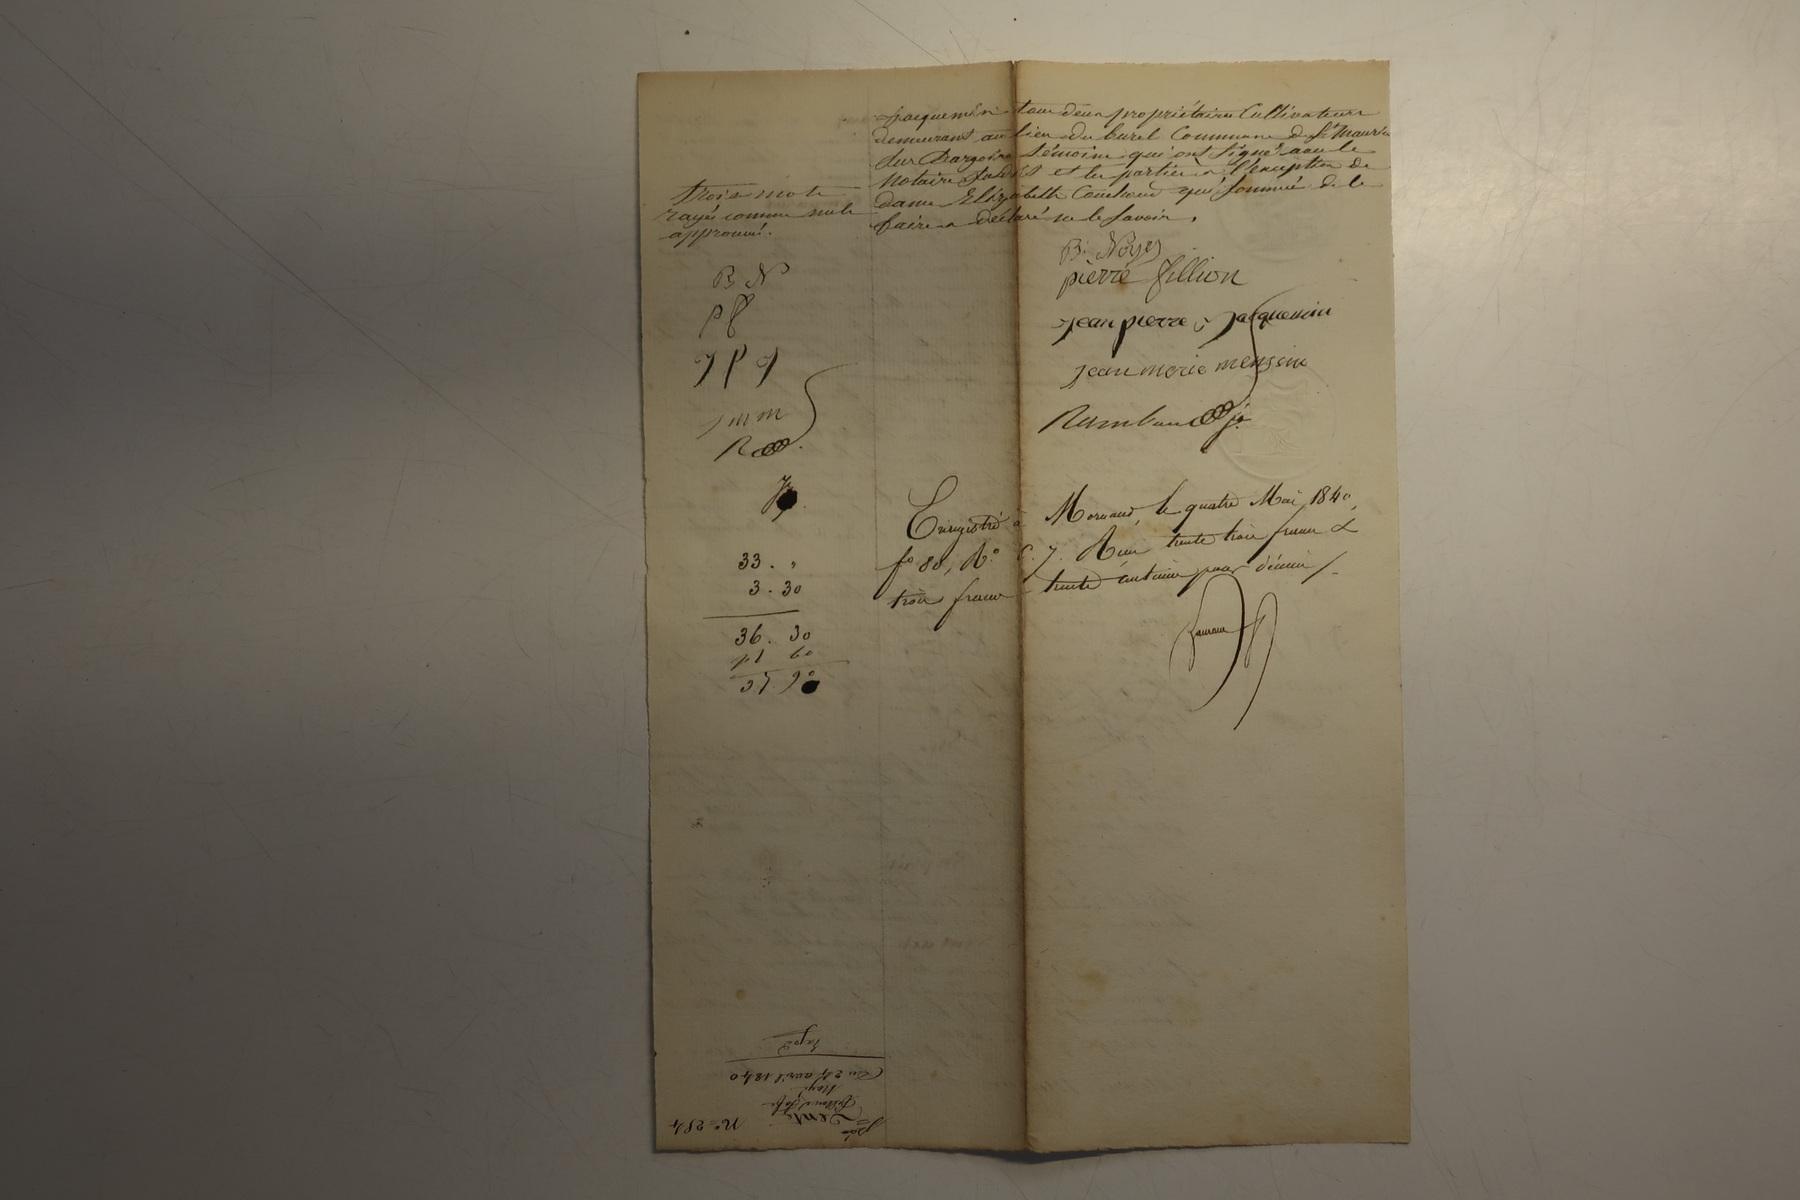 Jacquemin tous deux propriétaires Cultivateurs
demeurant au lieu du burel Commune de St Maurice
sur Dargoire témoins qui ont signé avec le
Notaire susdit et les parties à l'exception de
dame Elizabeth Couchoud qui sommée de le
faire a déclaré ne le savoir.
trois mots
rayés comme nuls
approuvé.
B N
P f
J P J
J m m
R
B. Noyer
pierre fillion
Jean pierre Jacquemin
Jean marie
Rambaud
Enregistré à Mornand, le quatre Mai 1840,
fo 80, Ro C. 7. Reçu trente trois francs &
trois francs trente centimes pour décime
33. "
3. 30
36. 30
1 60
37. 90
No 284
Vente
Noyer
Du 24 avril 1840